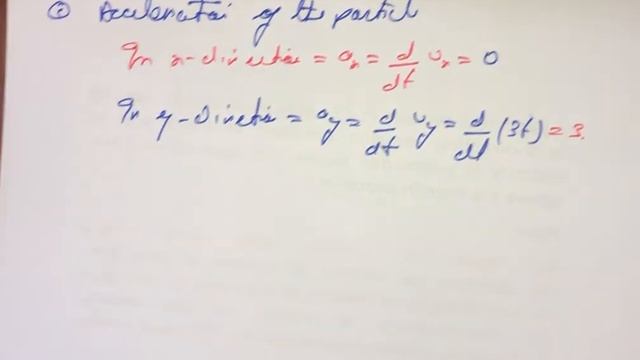 Acceleration of the particle
In x-direction = aₓ = d/dt vₓ = 0
In y-direction = a_y = d/dt v_y = d/dt (3t) = 3.